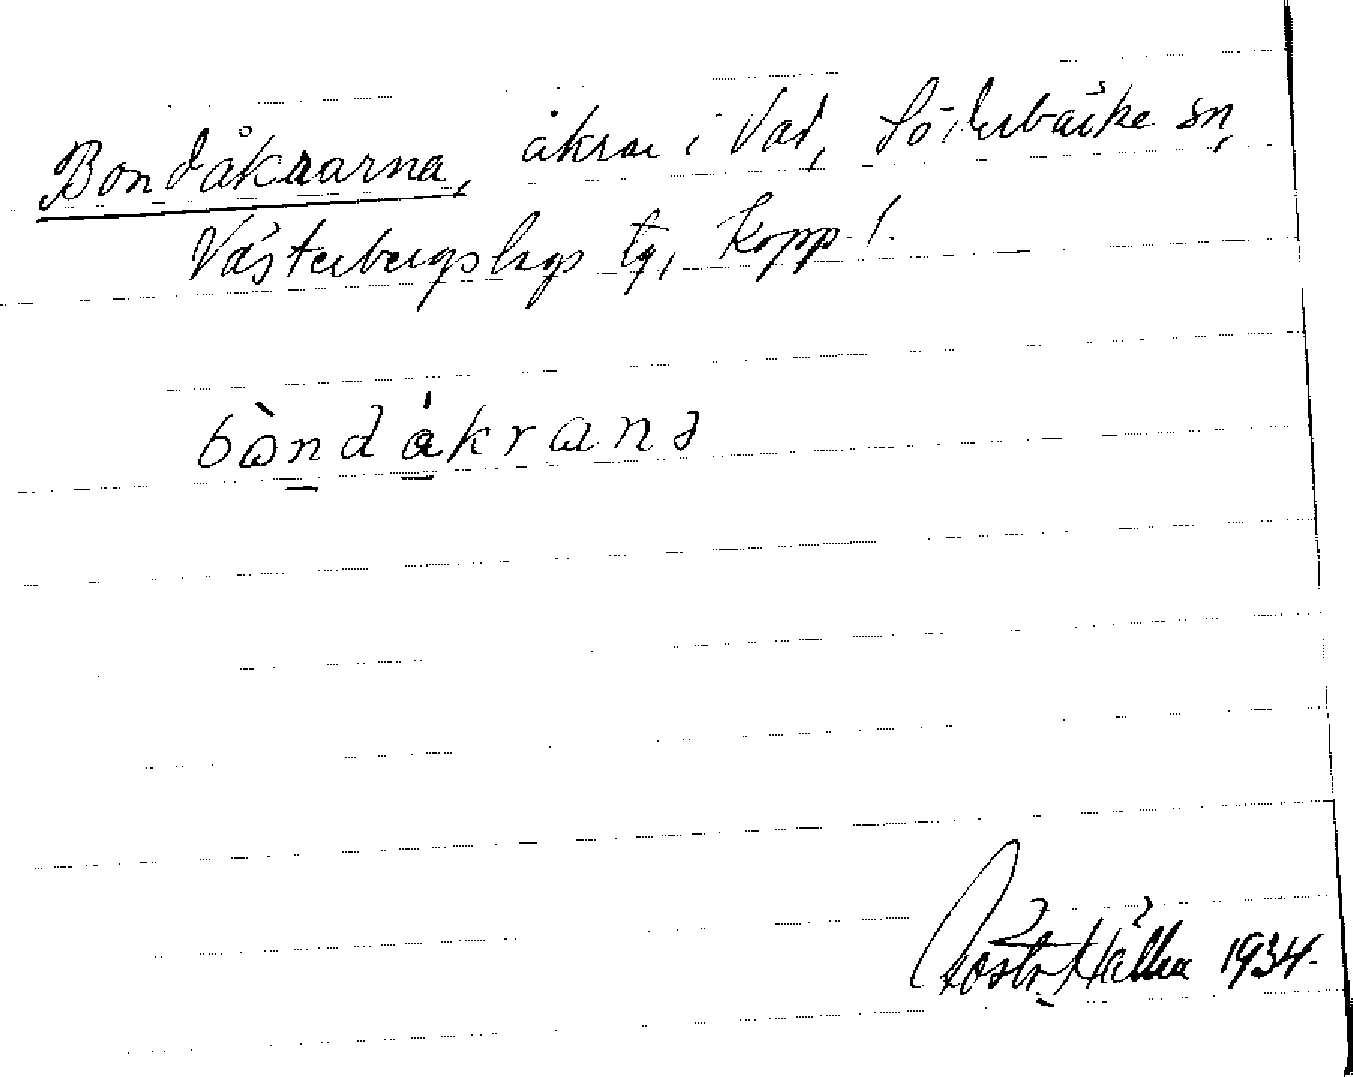 Bondåkrarna, åkrar i Vad, Söderbärke sn,
Västerbergslags tg, Kopp. l.
bòndåkrana
1934.